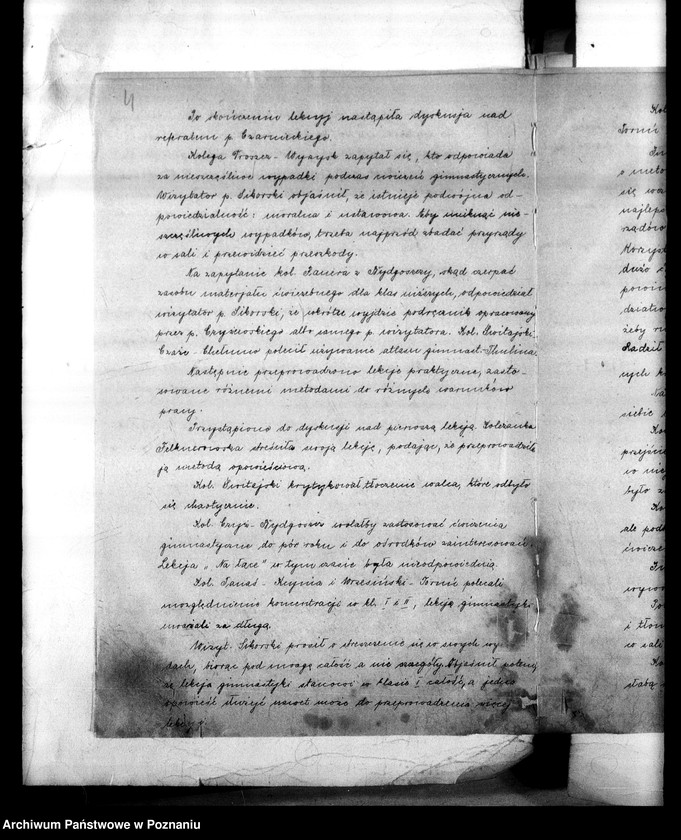 4
Po skończeniu lekcyj nastąpiła dyskusja nad
referatem p. Czarnieckiego.
Kolega Troszcz - Wyrzysk zapytał się, kto odpowiada
za nieszczęśliwe wypadki podczas ćwiczeń gimnastycznych.
Wizytator p. Sikorski objaśnił, że istnieje podwójna od-
powiedzialność: moralna i ustawowa. Aby uniknąć nie-
szczęśliwych wypadków, trzeba najprzód zbadać przyrządy
w sali i przewidzieć przeszkody.
Na zapytanie kol. z Bydgoszczy, skąd czerpać
zasobu materjału ćwiczebnego dla klas niższych, odpowiedział
wizytator p. Sikorski, że wkrótce wyjdzie podręcznik opracowany
przez p. albo samego p. wizytatora. Kol. Świtajski
Chełmno polecił używanie atlasu gimnast. Thulina.
Następnie przeprowadzono lekcje praktyczne, zasto-
sowane różnemi metodami do różnych warunków
pracy.
Przystąpiono do dyskusji nad pierwszą lekcją. Koleżanka
streściła swoją lekcję, podając, że przeprowadziła
ją metodą opowieściową.
Kol. Świtajski krytykował tłoczenie walca, które odbyło
się chaotycznie.
Kol. Czyż - Bydgoszcz wolałby zastosować ćwiczenia
gimnastyczne do pór roku i do ośrodków zainteresowań.
Lekcja „Na łące" w tym czasie była nieodpowiednią.
Kol. Janaś - Kcynia i Wrzesiński - Toruń polecali
uwzględnienie koncentracji w kl. I i II, lekcję gimnastyki
uważali za długą.
Wizyt. Sikorski prosił o streszczenie się w swych wy-
dach, biorąc pod uwagę całość a nie szczegóły. Objaśnił
że lekcja gimnastyki stanowi w klasie I całość, a jedna
opowieść służyć nawet może do przeprowadzenia więcej
lekcyj.
Kol
Toruń
o meto
się wza
najlepi
rządów
Korzyst
dużo i
powin
działan
żeby
Radził
nych k
Na
siebie
Ko
przejścia
w nie
było z
Ko
ale pod
ćwicze
wywo
i tłom
w sali
Ko
słabą
Archiwum Państwowe w Poznaniu